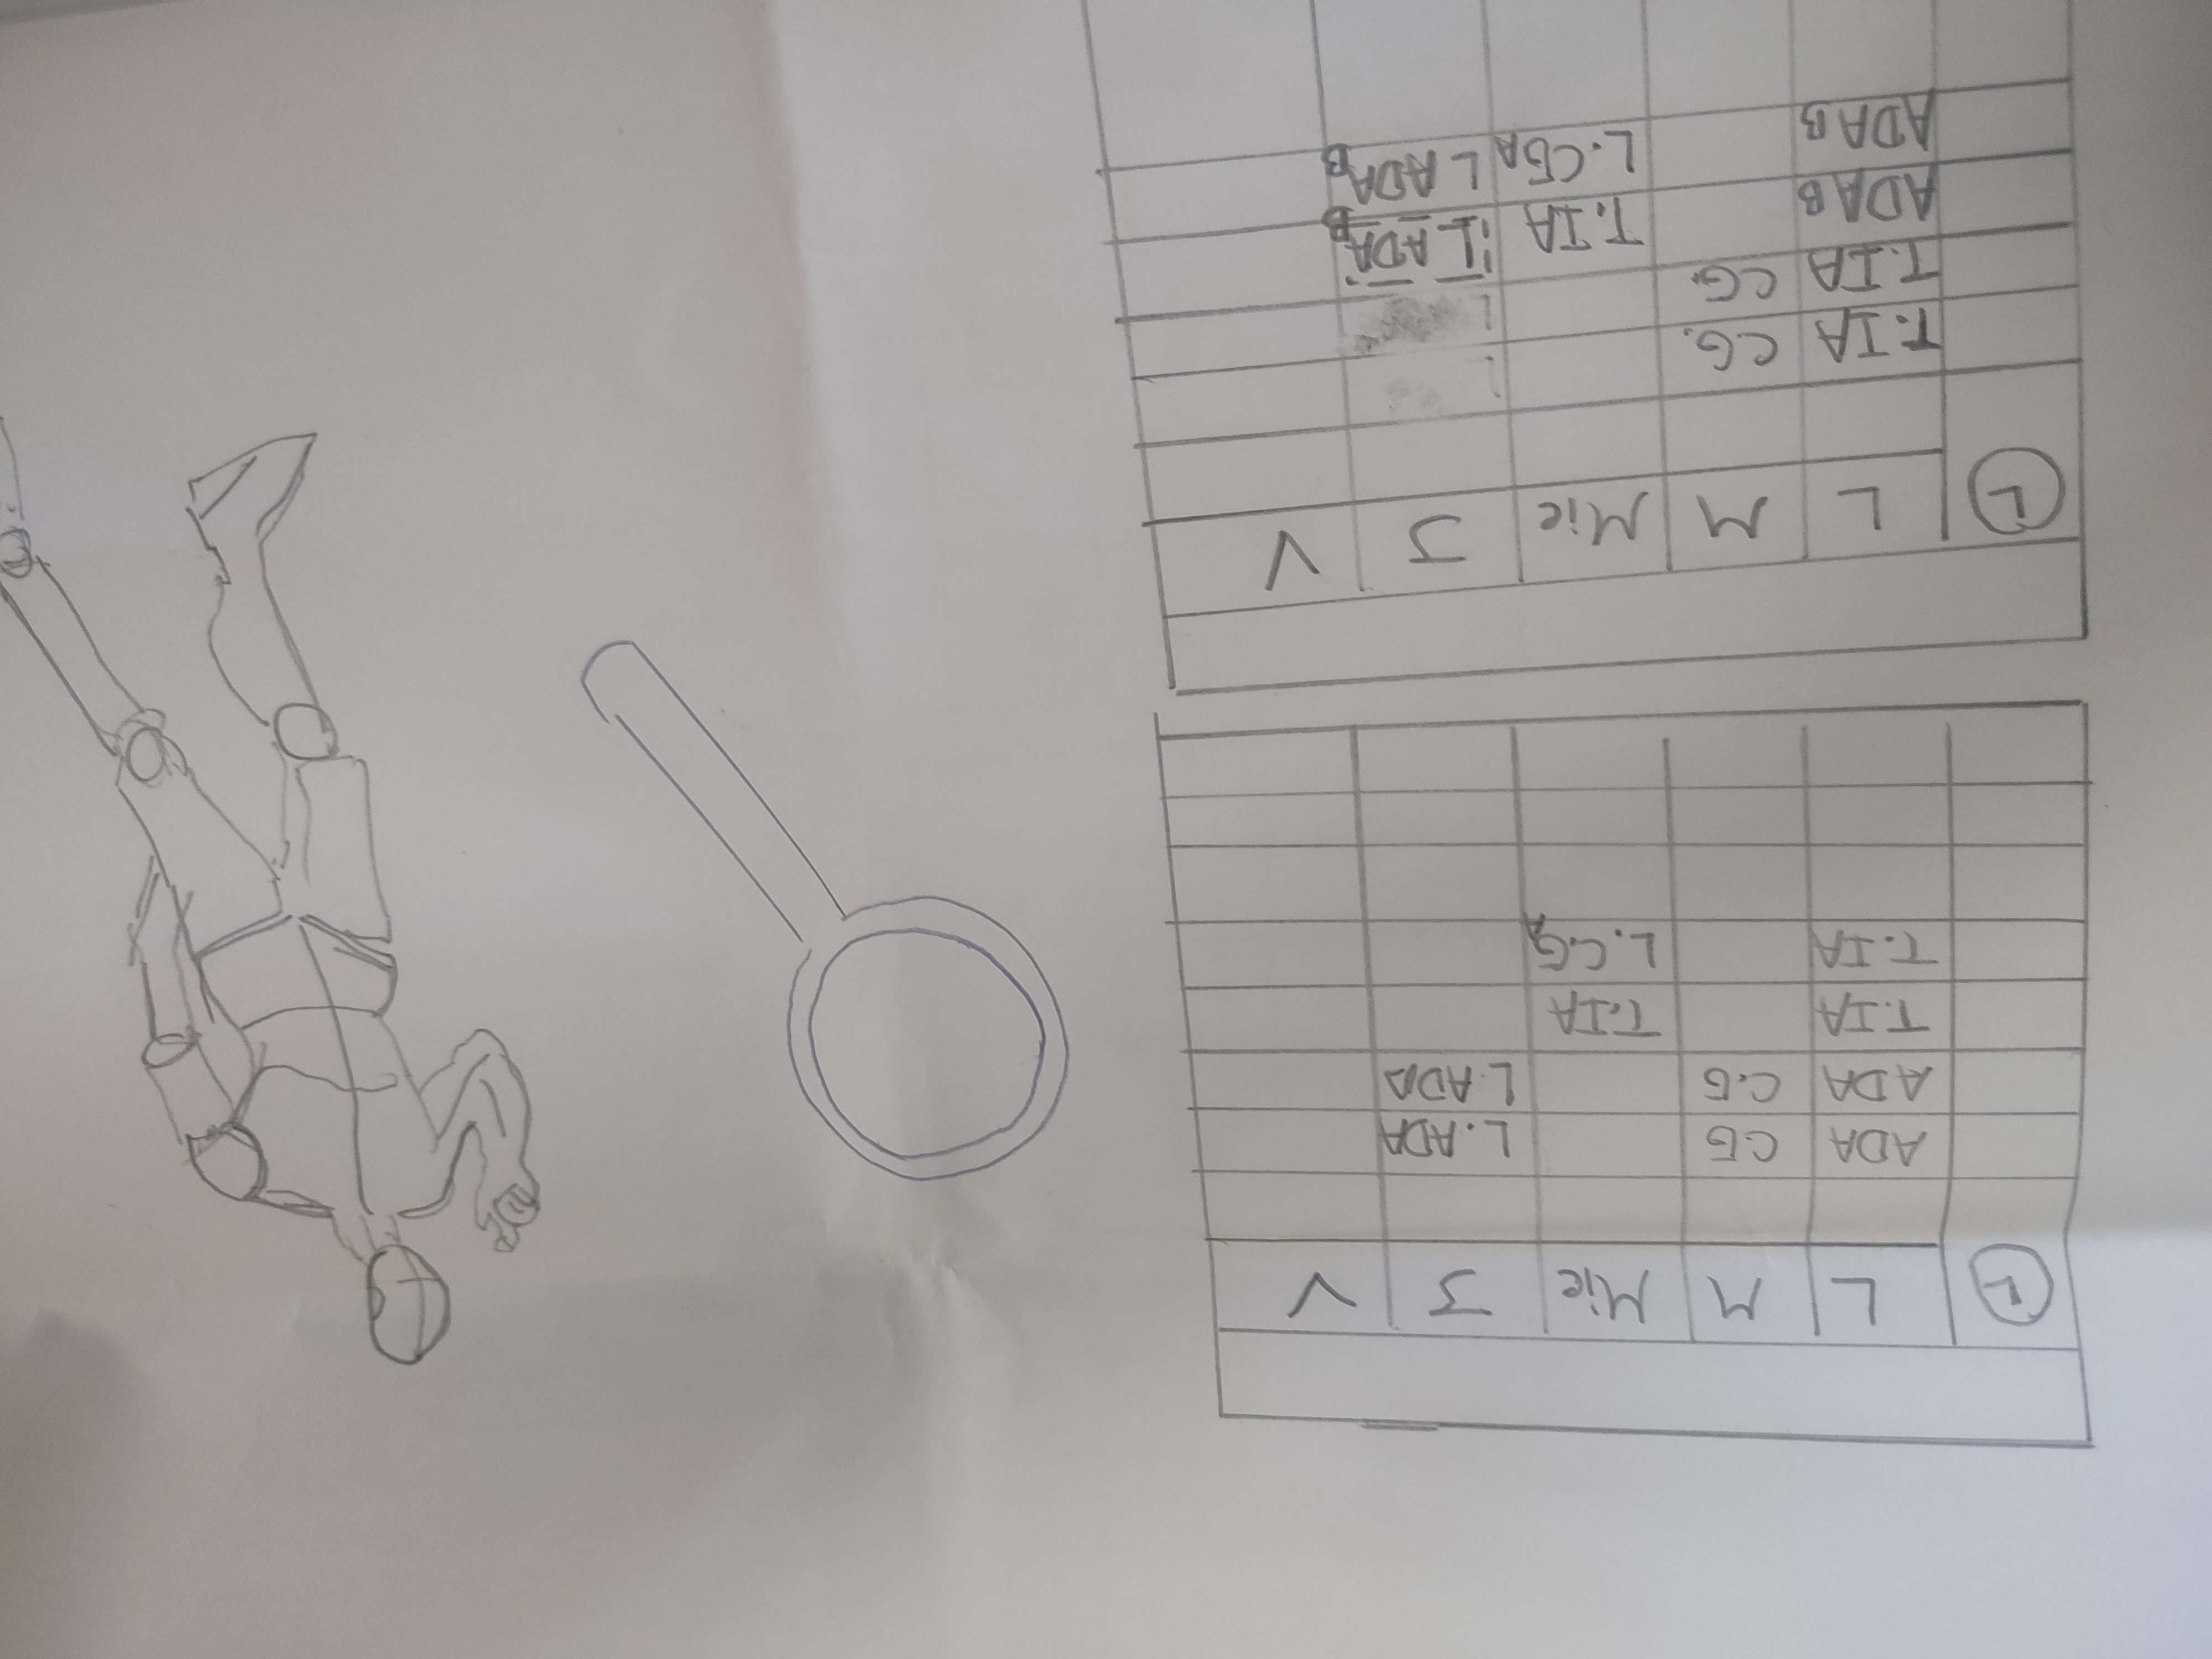 L M Mie J V
ADA C.G L.ADA
ADA C.G L.ADA
T.IA T.IA
T.IA L.C.G A
L M Mie J V
T.IA C.G.
T.IA CG.
ADA B T.IA L ADA B
ADA B L.CG A L ADA B